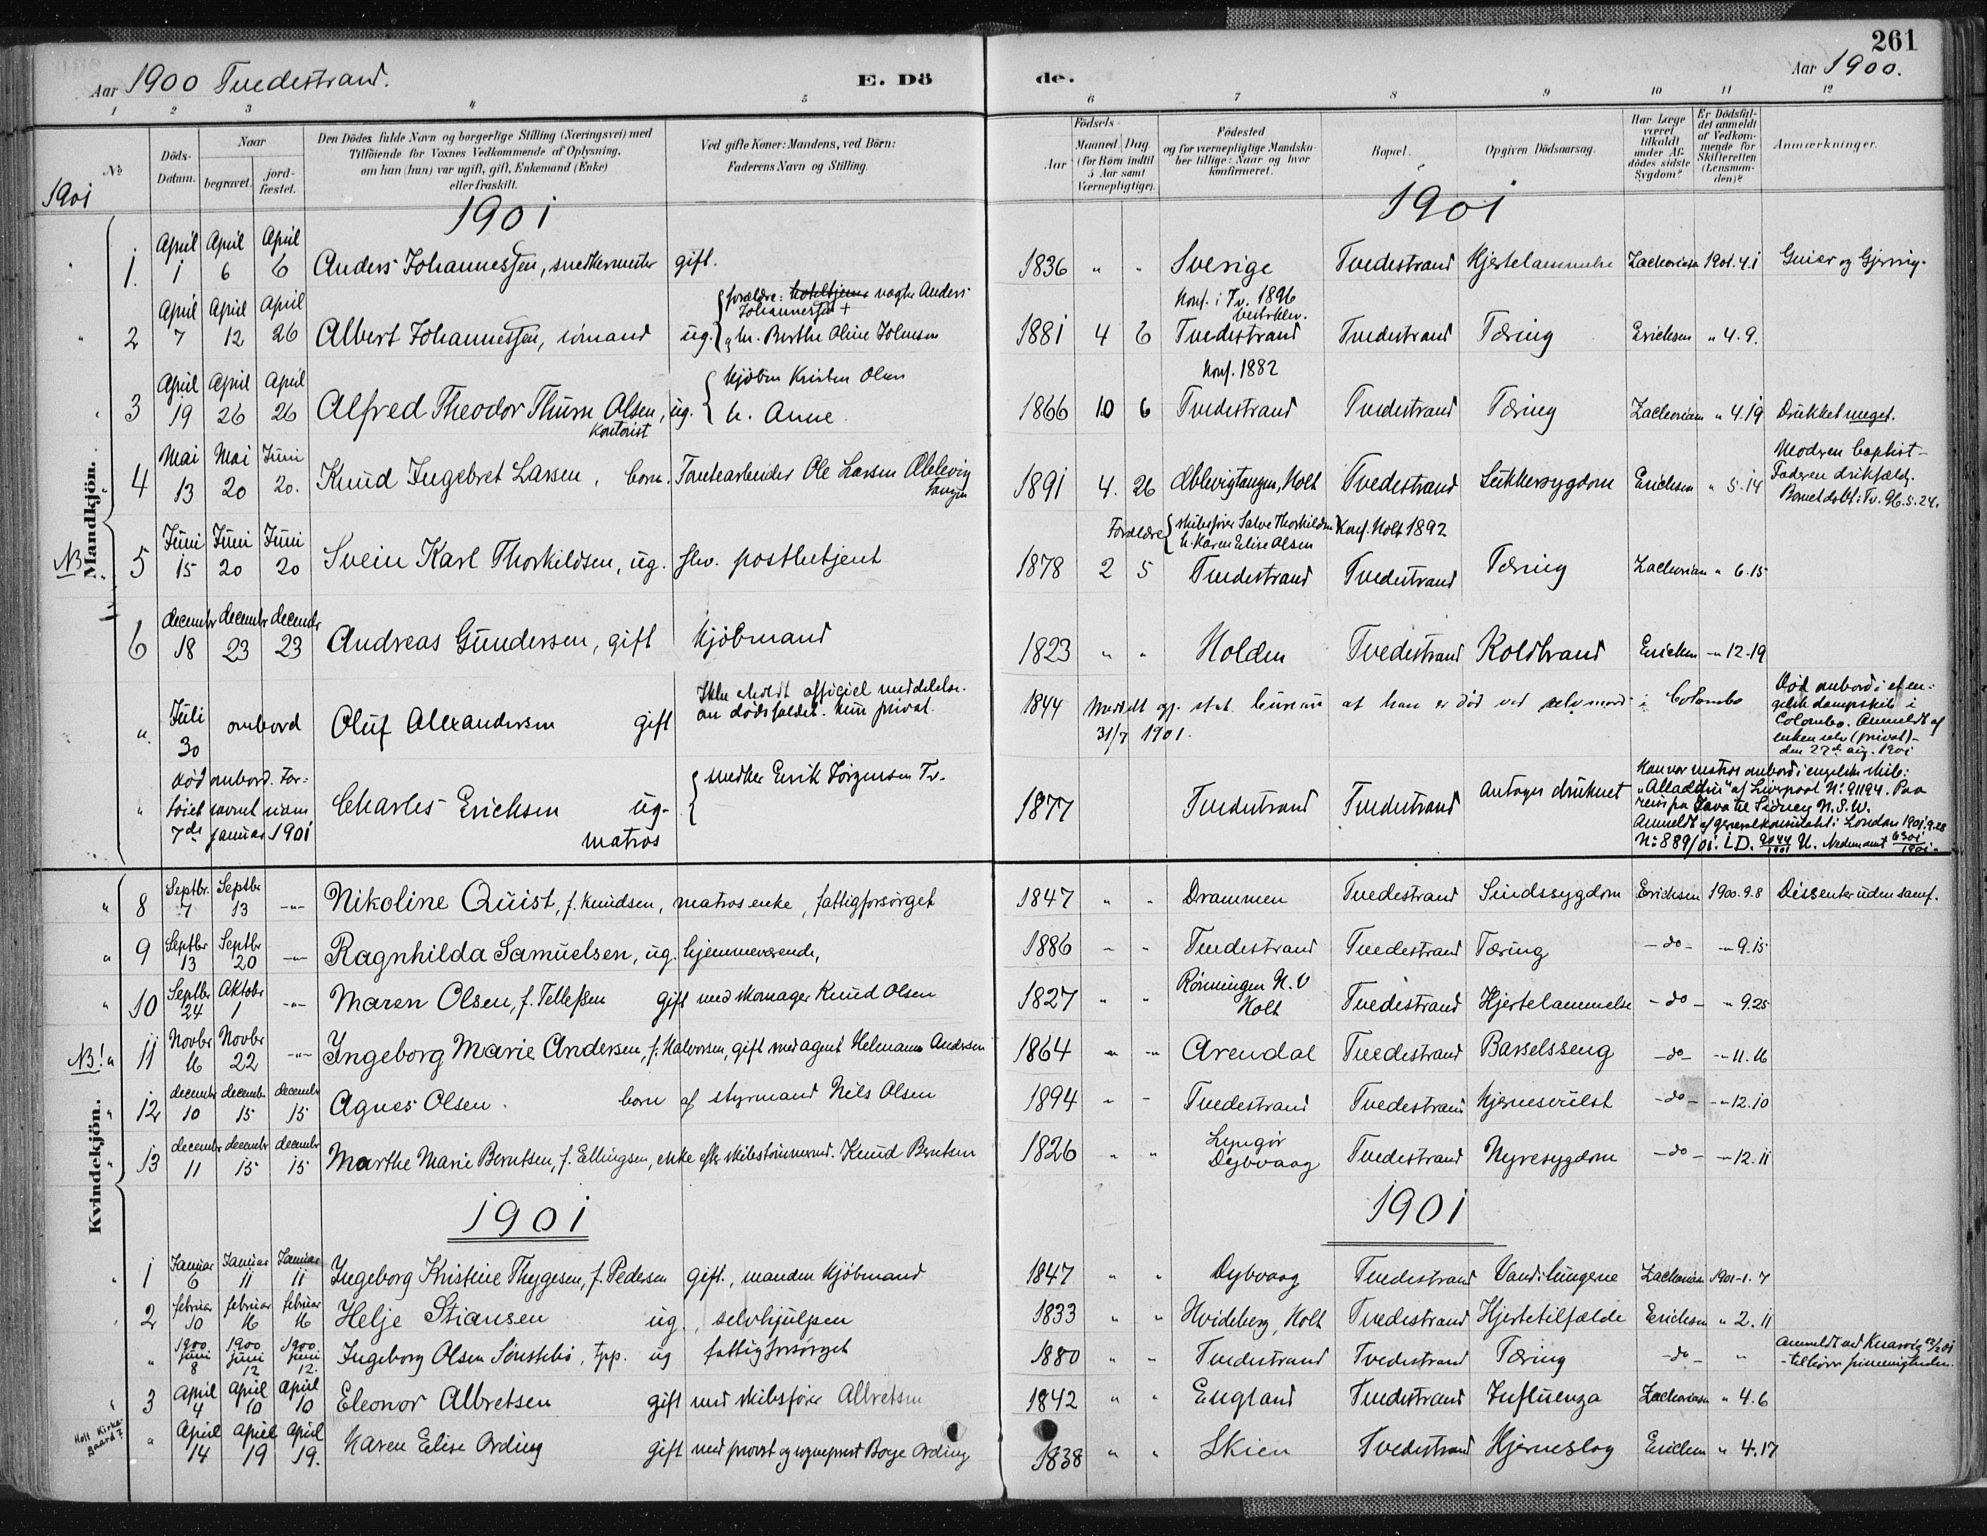 261
Aar 1900 Tvedestrand. E. Dö de. Aar 1900.
1 2 3 4 5 6 7 8 9 10 11 12
No
Döds-Datum.
Naar
begravet.
jord-fæstet.
Den Dödes fulde Navn og borgerlige Stilling (Næringsvei) med
Tilföiende for Voxnes Vedkommende af Oplysning,
om han (hun) var ugift, gift, Enkemand (Enke)
eller fraskilt.
Ved gifte Koner: Mandens, ved Börn:
Faderens Navn og Stilling.
Födsels-
Aar
Maaned Dag
(for Börn indtil
5 Aar samt
Værnepligtige).
Födested
og for værnepligtige Mandska-
ber tillige: Naar og hvor
konfirmeret.
Bopæl.
Opgiven Dödsaarsag.
Har Læge
været
tilkaldt
under Af-
dödes sidste
Sygdom?
Er Dödsfal-
det anmeldt
af Vedkom-
mende for
Skifteretten
(Lensman-
den)?
Anmærkninger.
1901
1901 1901
Mandkjön.
April April April
1. 1 6 6 Anders Johannessen, snedkermester gift. 1836 " " Sverige Tvedestrand Hjertelammelse Zachariasen 1901.4.1
April April April
forældre: vagter Anders
Johannessen +
Konf. i Tv. 1896
2 7 12 26 Albert Johannessen, sömand ug. h. Berthe Oline Johnsen 1881 4 6 Tvedestrand Tvedestrand Tæring Ericksen " 4.9.
April April April
Kjöbm Kristen Olsen
Konf. 1882
3 19 26 26 Alfred Theodor Thurn Olsen, ug. h. Anne. 1866 10 6 Tvedestrand Tvedestrand Tæring Zachariasen " 4.19 Drukket meget.
Kontorist
Mai Mai Juni
4 13 20 20. Knud Ingebret Larsen, barn. Tomtearbeider Ole Larsen Æblevig
tangen
1891 4. 26 Æblevigtangen, Holt Tvedestrand Sukkersygdom Ericksen " 5.14
Modren baptist-
Faderen drikfældig.
Juni Juni Juni
Forældre skibsförer Salve Thorkildsen
h. Karen Elise Olsen
Konf. Holt 1892
NB 5 15 20 20 Svein Karl Thorkildsen, ug. flv. postbetjent 1878 2 5 Tvedestrand Tvedestrand Tæring Zachariasen " 6.15
decembr decembr decembr
6 18 23 23 Andreas Gundersen, gift Kjöbmand 1823 " " Holden Tvedestrand Koldbrand Ericksen " 12.19
Juli
30 ombord Oluf Alexandersen gift
Ikke erholdt officiel meddelelse
om dödsfaldet. Kun privat.
1844 Meddelt og. stat. bureau at han er död ved selvmord i Colombo
31/7 1901.
Död ombord i et en-
gelsk dampskib i
Colombo. Anmeldt af
enken selv (privat)-
den 27de aug. 1901
död ombord. For-
7de januar 1901
Charles Ericksen ug-
matros
snedker Erik Jörgensen Tv.
1877 Tvedestrand Tvedestrand Antages druknet
Han var matros ombord i engelske skib:
"Alladdin" af Liverpool No 91194. Paa
reise fra Java til Sidney N.S.W.
Anmeldt af generalkonsulatet i London 1901.9.28
No 889/01. I.D. 9044/1901
Kvindekjön.
Septbr. Septbr
8 7 13 -"- Nikoline Quist, f. Knudsen, matros enke, fattigforsörget 1847 " " Drammen Tvedestrand Sindssygdom Ericksen 1900.9.8 Dissenter uden samf.
Septbr Septbr
9 13 20 -"- Ragnhilda Samuelsen, ug. hjemmeværende, 1886 " " Tvedestrand Tvedestrand Tæring -do- -"- 9.15
Septbr Aktobr
10 24 1 -"- Maren Olsen, f. Tellefsen gift med skomager Knud Olsen 1827 " " Rönningen N.V
Holt Tvedestrand Hjertelammelse -do- " 9.25
Novbr Novbr
NB! 11 16 22 -"- Ingeborg Marie Andersen, f. Halvorsen, gift med agent Helmann Andersen 1864 " " Arendal Tvedestrand Barselsseng -do- -"- 11.16
decembr decembr decembr
12 10 15 15 Agnes Olsen. barn af styrmand Nils Olsen 1894 " " Tvedestrand Tvedestrand Hjernesvulst -do- -"- 12.10
decembr decembr decembr
13 11 15 15 Marthe Marie Berntsen, f. Ellingsen, enke efter skibstömmermd. Knud Berntsen 1826 " " Lyngör
Dybvaag Tvedestrand Nyresygdom -do- -"- 12.11
1901 1901
Januar Januar Januar
1 6 11 11 Ingeborg Kristine Thygesen, f. Pedersen gift., manden Kjöbmand 1847 " " Dybvaag Tvedestrand Vand i lungerne Zachariasen 1901.1.7
februar februar februar
2 10 16 16 Helje Stiansen ug., selvhjulpen 1833 " " Hvideberg, Holt Tvedestrand Hjertetilfælde Ericksen " 2.11
1900 1900 1900
juni juni juni
" 8 12 12. Ingeborg Olsen Sönstebö, tpp. ug fattigforsörget 1880 " " Tvedestrand Tvedestrand Tæring -do- "
April April April
3 4 10 10 Eleonor Albretsen gift med skibsförer Albretsen 1842 " " England Tvedestrand Influenza Zachariasen " 4.6
Holt Kirke-
gaard?
April April April
" 14 19 19. Karen Elise Ording gift med provst og sogneprest Borge Ording 1838 " " Skien Tvedestrand Hjerneslag Ericksen " 4.17